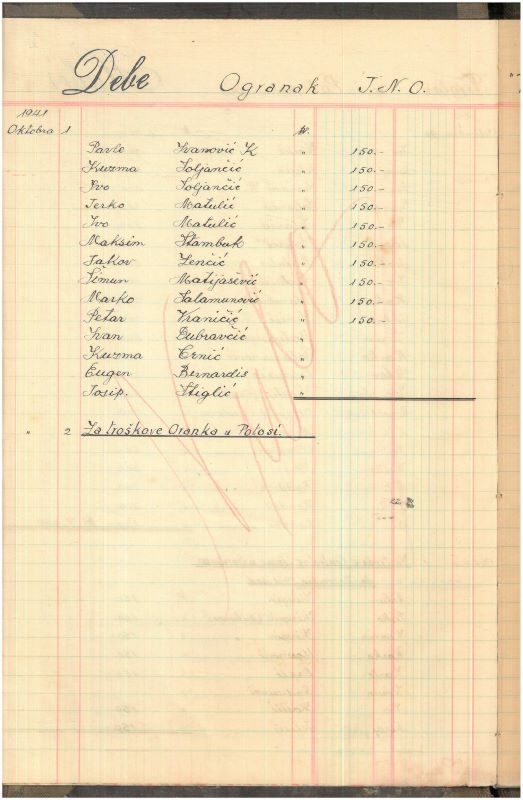 Debe Ogranak J.N.O.
1941
Oktobra 1
Pavle Ivanović K " 150.-
Kuzma Soljančić " 150.-
Ivo Soljančić " 150.-
Jerko Matulić " 150.-
Ivo Matulić " 150.-
Maksim Štambuk " 150.-
Jakov Zenčić " 150.-
Šimun Matijašević " 150.-
Marko Salamunović " 150.-
Petar Kraničić " 150.-
Ivan Dubravčić "
Kuzma Crnić "
Eugen Bernardis "
Josip. Štiglić "
" 2 Za troškove Oranka u Potosi.